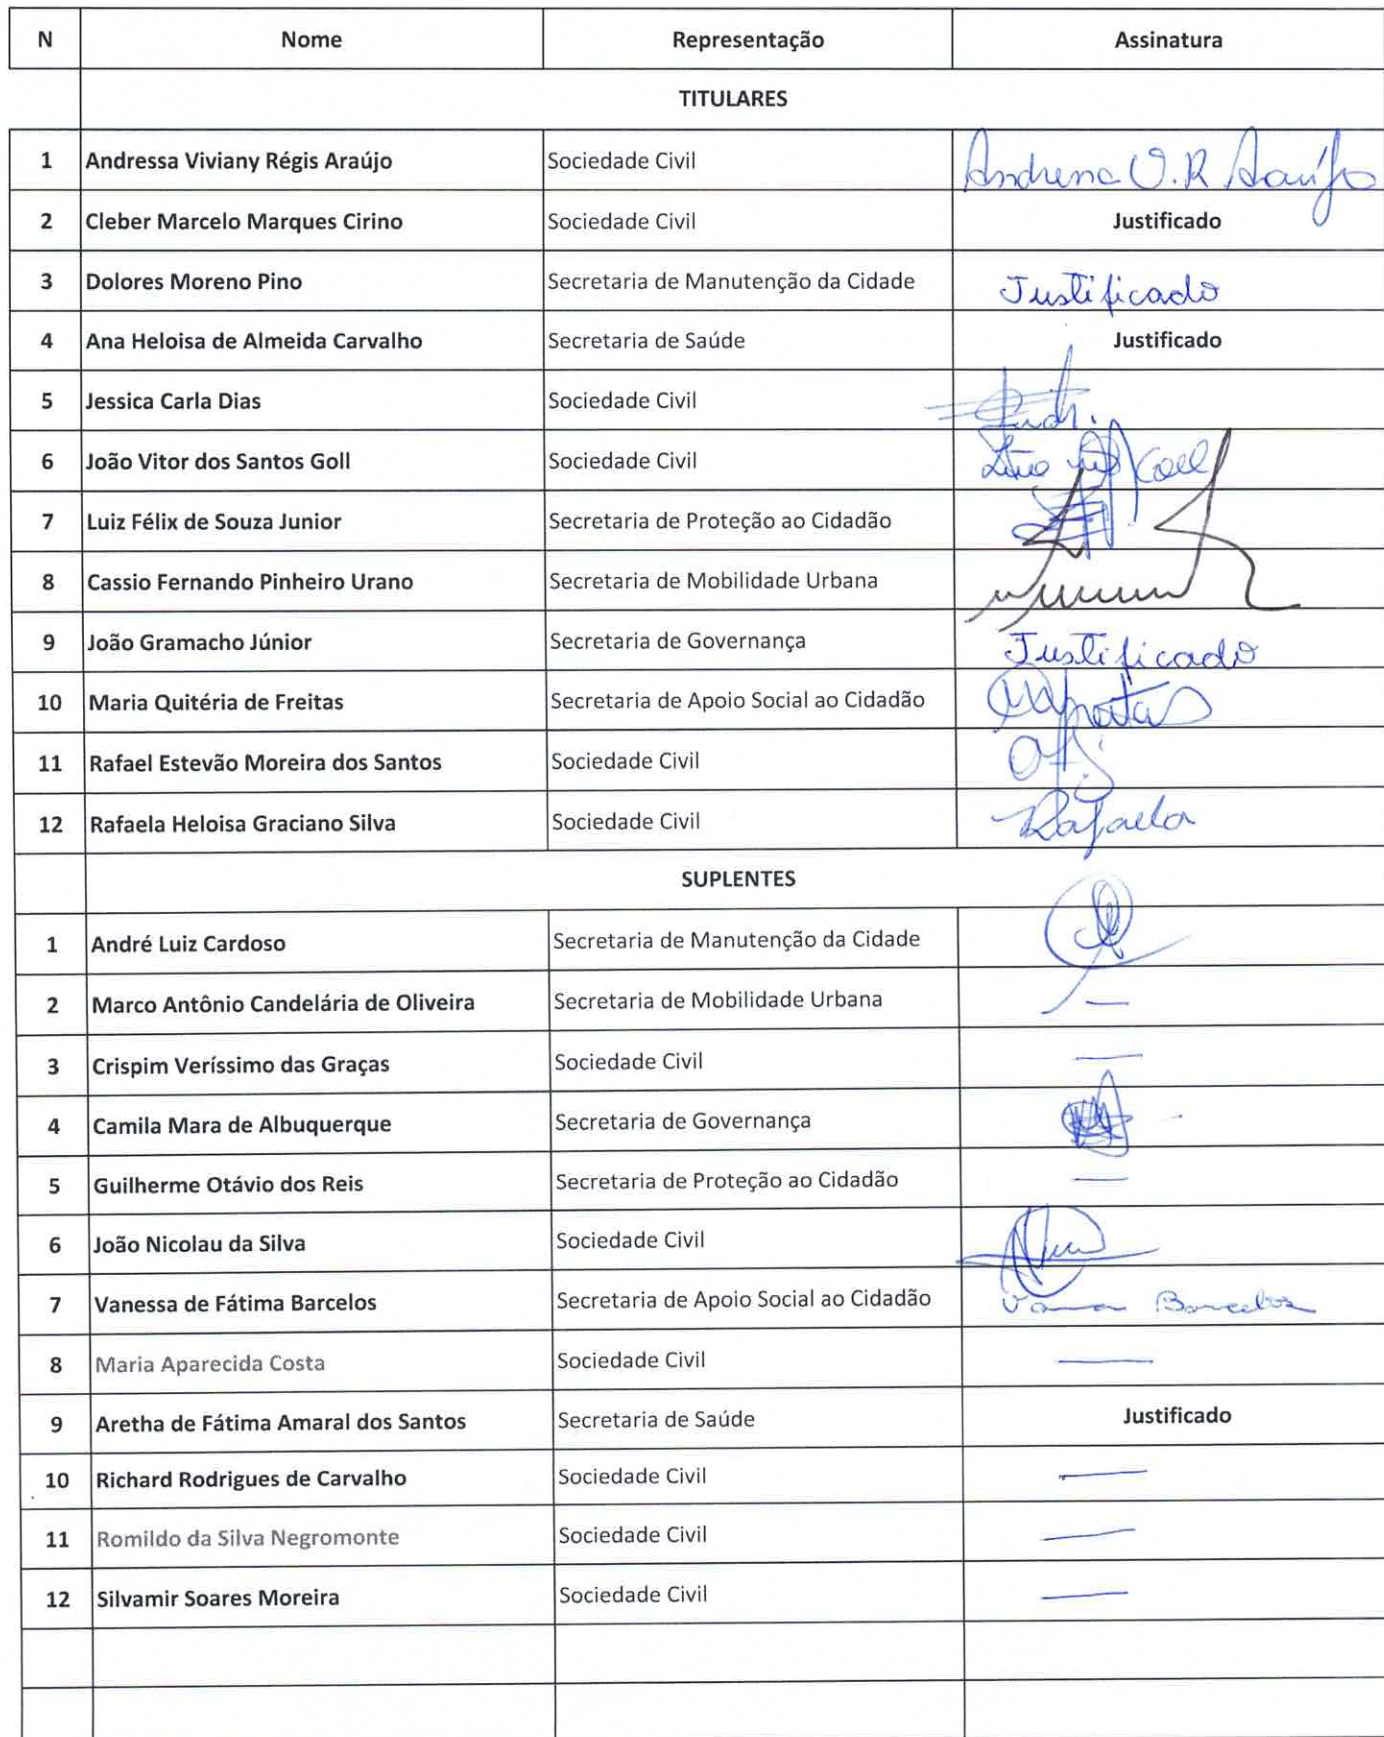 N Nome Representação Assinatura
TITULARES
1 Andressa Viviany Régis Araújo Sociedade Civil Andressa V. R Araújo
2 Cleber Marcelo Marques Cirino Sociedade Civil Justificado
3 Dolores Moreno Pino Secretaria de Manutenção da Cidade Justificado
4 Ana Heloisa de Almeida Carvalho Secretaria de Saúde Justificado
5 Jessica Carla Dias Sociedade Civil
6 João Vitor dos Santos Goll Sociedade Civil
7 Luiz Félix de Souza Junior Secretaria de Proteção ao Cidadão
8 Cassio Fernando Pinheiro Urano Secretaria de Mobilidade Urbana
9 João Gramacho Júnior Secretaria de Governança Justificado
10 Maria Quitéria de Freitas Secretaria de Apoio Social ao Cidadão
11 Rafael Estevão Moreira dos Santos Sociedade Civil
12 Rafaela Heloisa Graciano Silva Sociedade Civil Rafaela
SUPLENTES
1 André Luiz Cardoso Secretaria de Manutenção da Cidade
2 Marco Antônio Candelária de Oliveira Secretaria de Mobilidade Urbana —
3 Crispim Veríssimo das Graças Sociedade Civil —
4 Camila Mara de Albuquerque Secretaria de Governança
5 Guilherme Otávio dos Reis Secretaria de Proteção ao Cidadão —
6 João Nicolau da Silva Sociedade Civil
7 Vanessa de Fátima Barcelos Secretaria de Apoio Social ao Cidadão Barcelos
8 Maria Aparecida Costa Sociedade Civil —
9 Aretha de Fátima Amaral dos Santos Secretaria de Saúde Justificado
10 Richard Rodrigues de Carvalho Sociedade Civil —
11 Romildo da Silva Negromonte Sociedade Civil —
12 Silvamir Soares Moreira Sociedade Civil —